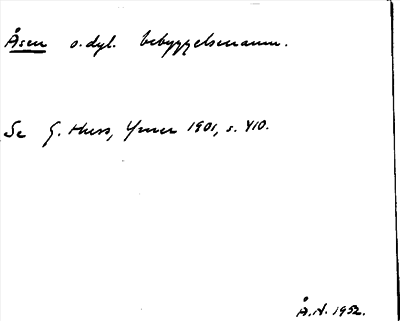 Åsen o.dyl. bebyggelsenamn.
Se G. Huss, Ymer 1901, s. 410.
Å.N. 1952.